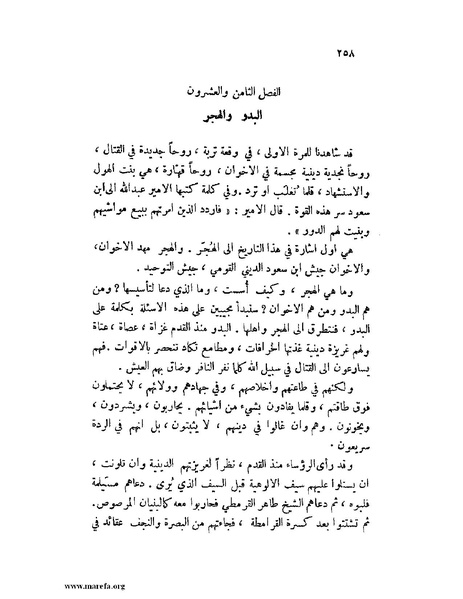 ٢٥٨
الفصل الثامن والعشرون
البدو والهجر
قد شاهدنا للمرة الاولى ، في وقعة تربة ، روحاً جديدة في القتال ،
روحاً نجدية دينية مجسمة في الاخوان ، روحاً قهّارة ، هي بنت الهول
والاستشهاد ، قلما تُغلَب او تردّ . وفي كلمة كتبها الامير عبدالله الى ابن
سعود سر هذه القوة . قال الامير : « فاردد الذين امرتهم ببيع مواشيهم
وبنيت لهم الدور » .
هي اول اشارة في هذا التاريخ الى الهُجَر . والهجر مهد الاخوان ،
والاخوان جيش ابن سعود الديني القومي ، جيش التوحيد .
وما هي الهجر ، وكيف أُسست ، وما الذي دعا لتأسيسها ? ومن
هم البدو ومن هم الاخوان ? سنبدأ مجيبين على هذه الاسئلة بكلمة على
البدو ، فنتطرق الى الهجر واهلها . البدو منذ القدم غزاة ، عصاة ، عتاة
ولهم غريزة دينية غذتها الخرافات ، ومطامع تكاد تنحصر بالاقوات . فهم
يسارعون الى القتال في سبيل الله كلما نفر النافر وضاق بهم العيش .
ولكنهم في طاعتهم واخلاصهم ، وفي جهادهم وولائهم ، لا يحتملون
فوق طاقتهم ، وقلما يفادون بشيء من اشيائهم . يحاربون ، ويشردون ،
ويخونون . وهم وان غالوا في دينهم ، لا يثبتون ، بل انهم في الردة
سريعون .
وقد رأى الرؤساء منذ القدم ، نظراً لغريزتهم الدينية وان تلونت ،
ان يستلوا عليهم سيف الالوهية قبل السيف الذي يُرى . دعاهم مسيلمة
فلبوه ، ثم دعاهم الشيخ طاهر القرمطي فحاربوا معه كالبنيان المرصوص .
ثم تشتتوا بعد كسرة القرامطة ، فجاءتهم من البصرة والنجف عقائد في
www.marefa.org